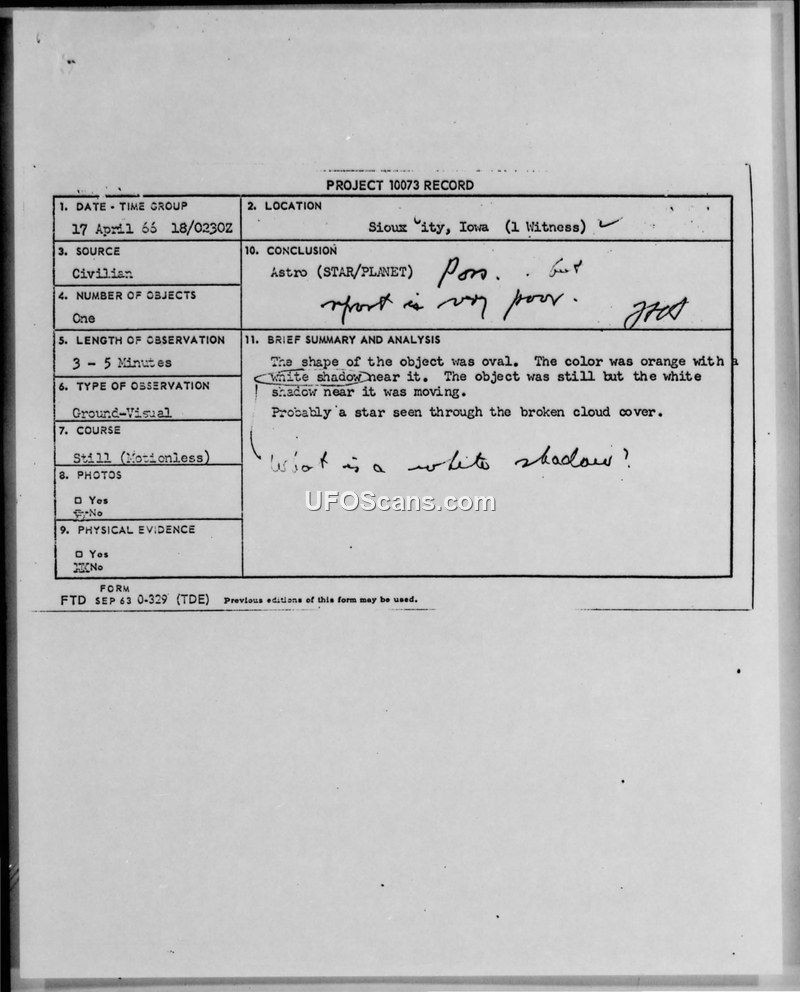 PROJECT 10073 RECORD
1. DATE - TIME GROUP
17 April 66 18/0230Z
2. LOCATION
Sioux City, Iowa (1 Witness)
3. SOURCE
Civilian
10. CONCLUSION
Astro (STAR/PLANET) Poss. but
report is very poor.
4. NUMBER OF OBJECTS
One
5. LENGTH OF OBSERVATION
3 - 5 Minutes
11. BRIEF SUMMARY AND ANALYSIS
The shape of the object was oval. The color was orange with a
white shadow near it. The object was still but the white
shadow near it was moving.
Probably a star seen through the broken cloud cover.
What is a white shadow?
6. TYPE OF OBSERVATION
Ground-Visual
7. COURSE
Still (Motionless)
8. PHOTOS
□ Yes
No
9. PHYSICAL EVIDENCE
□ Yes
No
FORM
FTD SEP 63 0-329 (TDE) Previous editions of this form may be used.
UFOScans.com